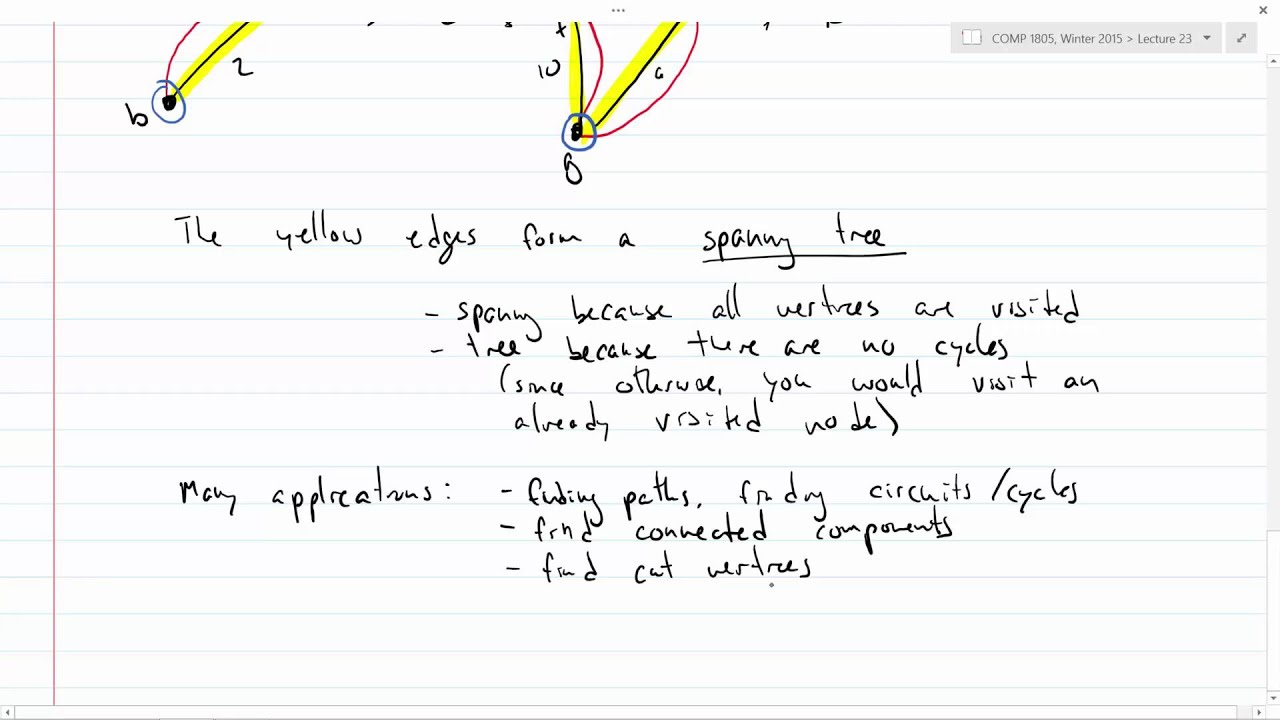 COMP 1805, Winter 2015 > Lecture 23
2
b
10
The yellow edges form a spanning tree
- spanning because all vertices are visited
- tree because there are no cycles
(since otherwise, you would visit an
already visited node)
Many applications: - finding paths, finding circuits/cycles
- find connected components
- find cut vertices